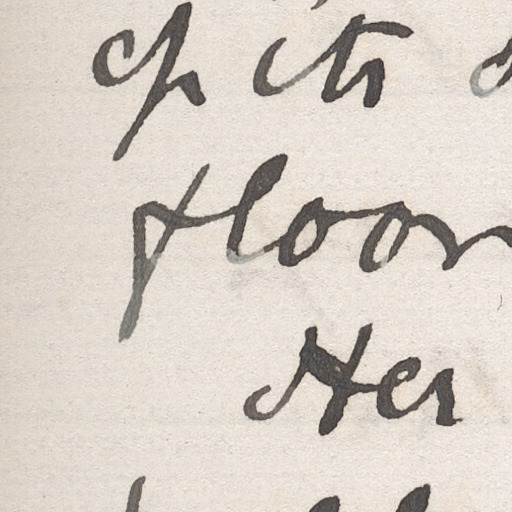 of its
floor
Her